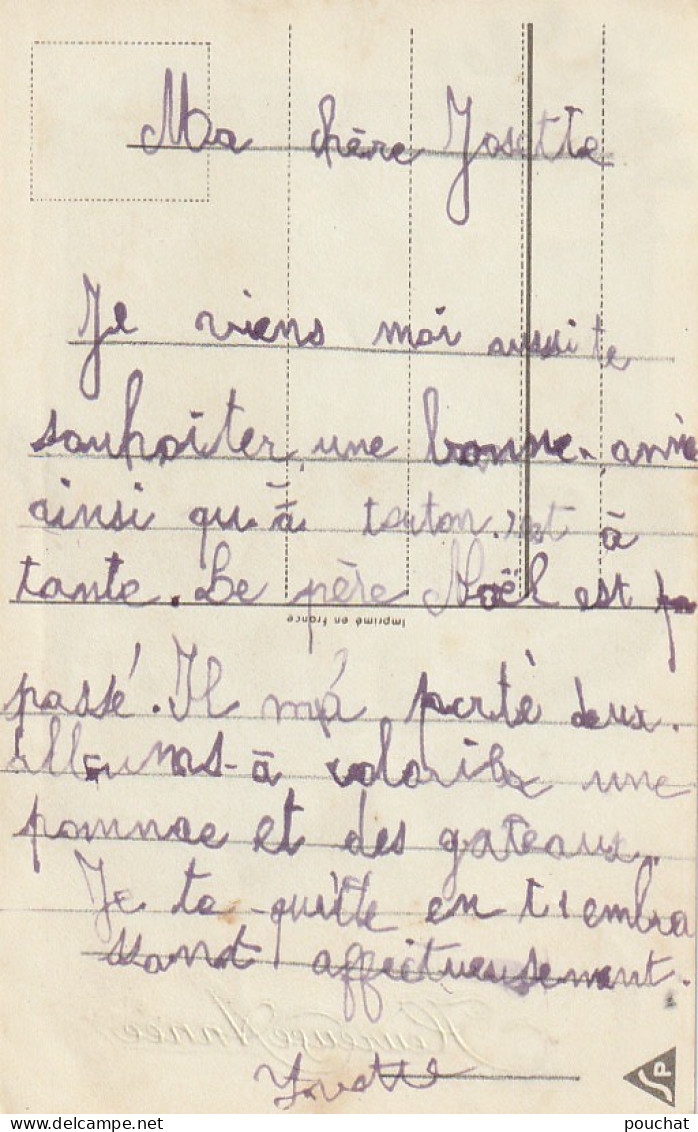 Ma chère Josette
Je viens moi aussi te
souhaiter une bonne année
ainsi qu'à tonton et à
tante. Le père Noël est
passé. Il m'a porté deux
albums à colorier une
pomme et des gateaux.
Je te quitte en t'embra
ssant affectueusement.
Yvette
Imprimé en France
Heureuse Année
SP
pouchat